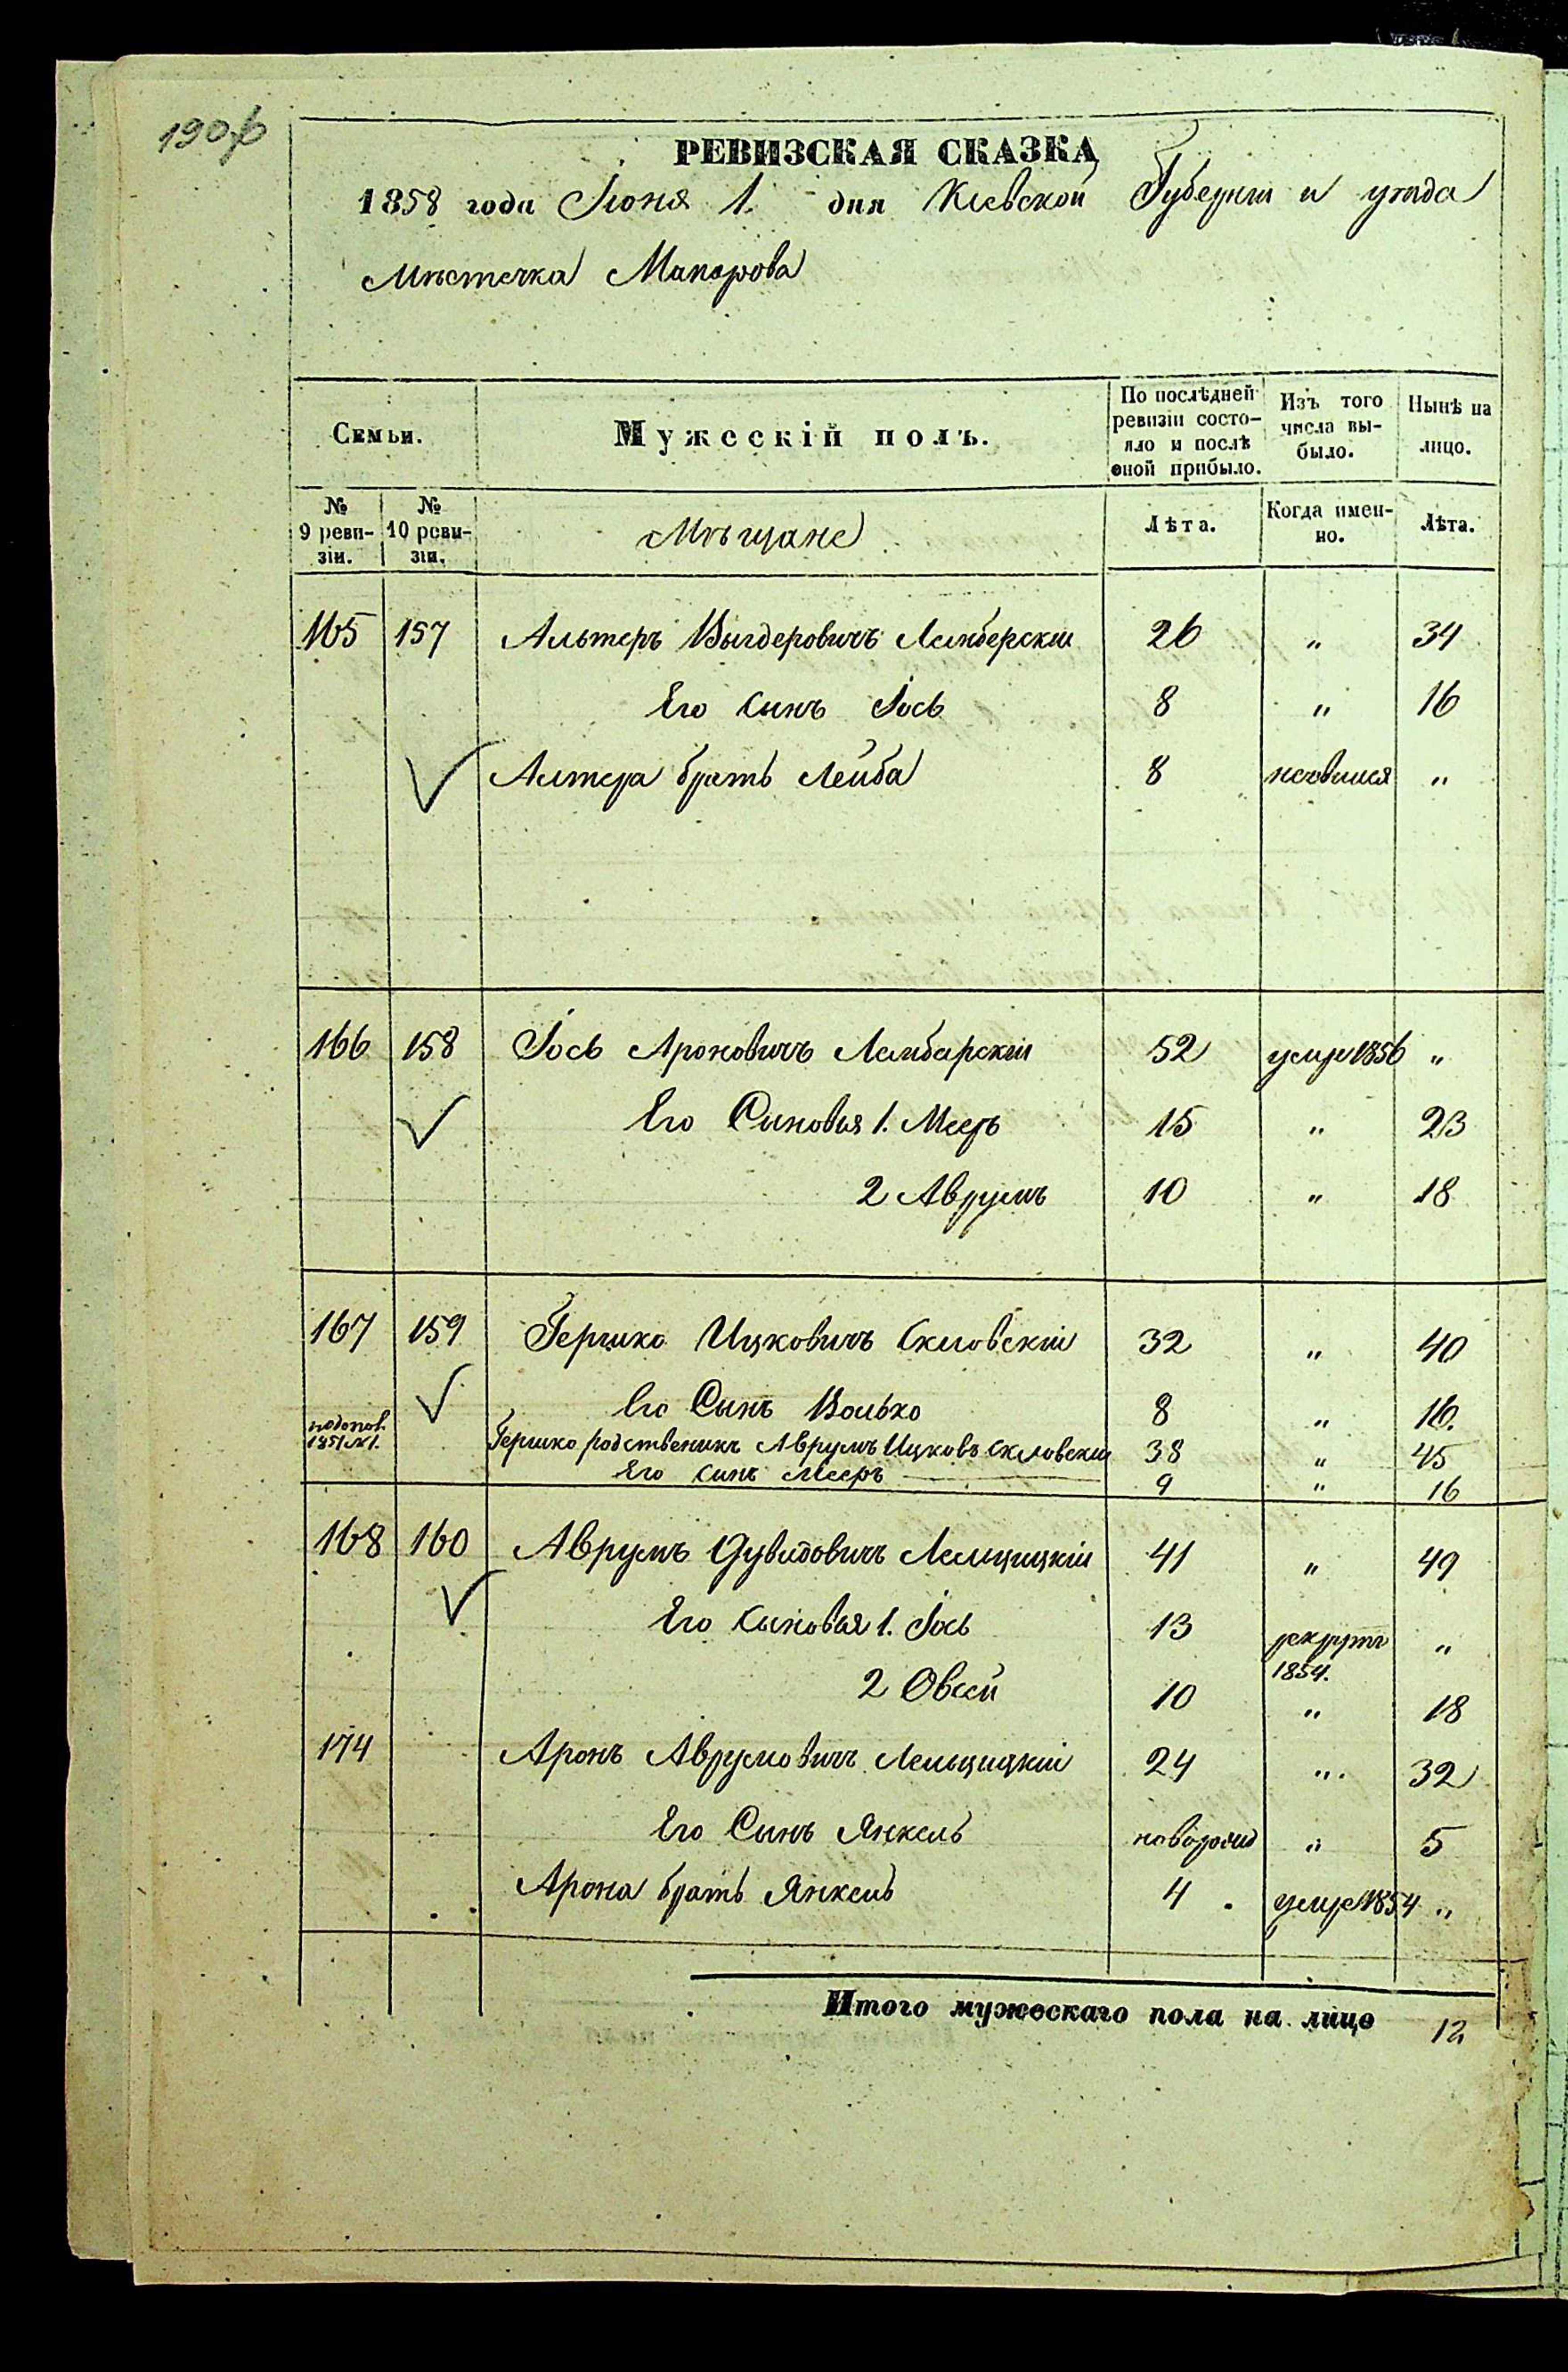 190об
РЕВИЗСКАЯ СКАЗКА
1858 года Іюня 1. дня Кіевской Губерніи и уѣзда
Мѣстечка Макарова
Семьи.
Мужескій полъ.
По послѣдней ревизіи состояло и послѣ оной прибыло.
Изъ того числа выбыло.
Нынѣ на лицо.
№ 9 ревизіи.
№ 10 ревизіи.
Мѣщане
Лѣта.
Когда именно.
Лѣта.
165 157 Альтеръ Лемберскій 26 " 34
Его сынъ Іось 8 " 16
Алтера братъ Лейба 8 "
166 158 Іось Ароновичъ Лембарскій 52 умре 1856 "
Его Сыновья 1. Мееръ 15 " 23
2 Аврумъ 10 " 18
167 159 Гершко Ицковичъ Скловскій 32 " 40
Его Сынъ Волько 8 " 16.
1851 №1. Гершко родственикъ Аврумъ Ицковъ Скловскій 38 " 45
Его сынъ Мееръ 9 " 16
168 160 Аврумъ Дувидовичъ Лемцицкій 41 " 49
Его сыновья 1. Іось 13 рекрутъ 1854. "
2 Овсей 10 " 18
174 Аронъ Аврумовичъ Лемцицкій 24 " 32
Его Сынъ Янкель новорожд " 5
Арона братъ Янкель 4 умре 1854 "
Итого мужескаго пола на лицо 12